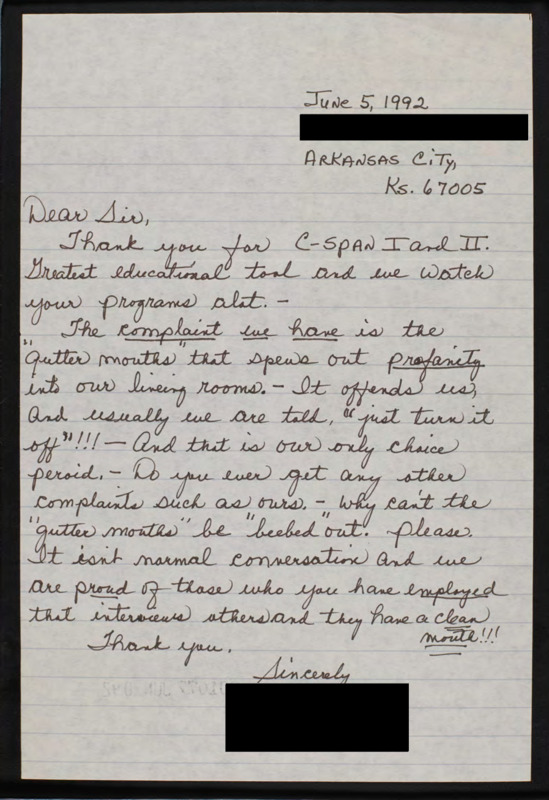 June 5, 1992
Arkansas City,
Ks. 67005
Dear Sir,
Thank you for C-SPAN I and II.
Greatest educational tool and we watch
your programs alot. -
The complaint we have is the
"gutter mouths" that spews out profanity
into our liveing rooms. - It offends us,
And usually we are told, "just turn it
off"!!! - And that is our only choice
peroid. - Do you ever get any other
complaints such as ours. - Why can't the
"gutter mouths" be "beebed" out. Please.
It isn't normal conversation and we
are proud of those who you have employed
that interviews others and they have a clean
mouth!!!
Thank you.
Sincerely